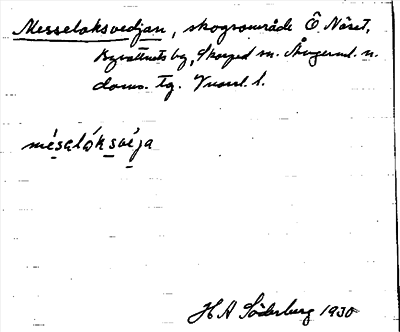 Messeloksvedjan, skogsområde Ö Näset,
Byvattnets by, Skorped sn. Ångerml. n.
doms. tg. Vnorrl. l.
mésalóksvéja
H A Söderberg 1930